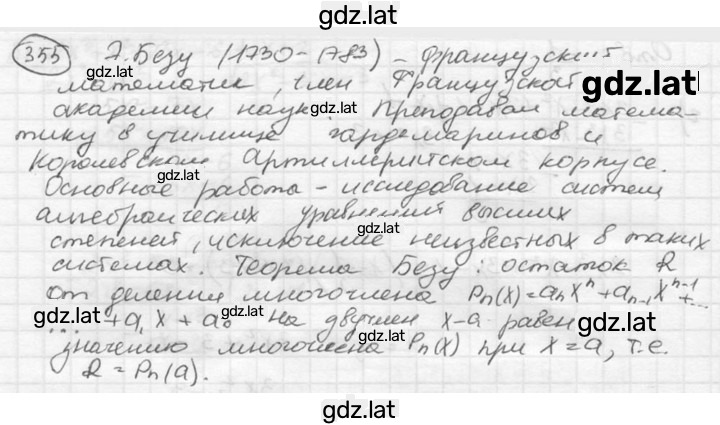 gdz.lat
355 Э. Безу (1730-1783) - французский
gdz.lat
математик, член Французской
gdz.lat
академии наук. Преподавал матема-
gdz.lat
тику в училище гардемаринов и
Королевском артиллеритском корпусе.
gdz.lat
Основные работа - исследование систем
алгебраических уравнений высших
степеней, исключение неизвестных в таких
gdz.lat
системах. Теорема Безу: остаток R
gdz.lat
от деления многочлена Pn(x)=anxⁿ+an-1xⁿ⁻¹+...
gdz.lat
...+a1x+a0 на двучлен x-a равен
gdz.lat
значению многочлена Pn(x) при x=a, т.е.
gdz.lat
R=Pn(a).
gdz.lat